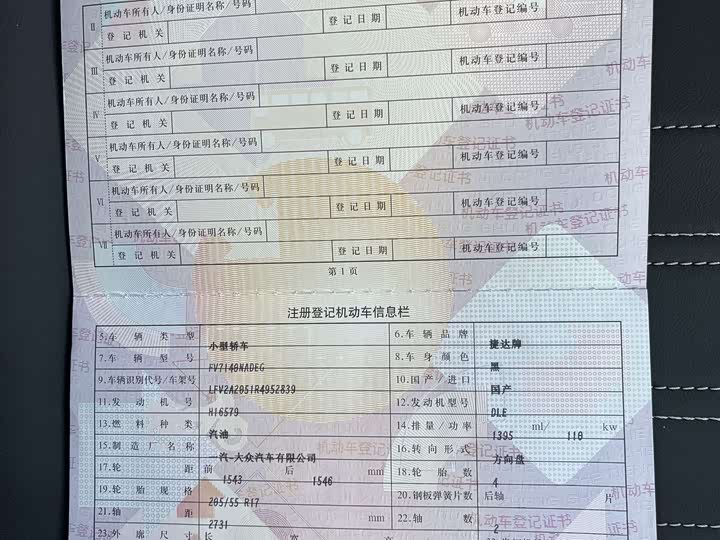 Ⅱ 机动车所有人/身份证明名称/号码
登记机关 登记日期 机动车登记编号
Ⅲ 机动车所有人/身份证明名称/号码
登记机关 登记日期 机动车登记编号
Ⅳ 机动车所有人/身份证明名称/号码
登记机关 登记日期 机动车登记编号
Ⅴ 机动车所有人/身份证明名称/号码
登记机关 登记日期 机动车登记编号
Ⅵ 机动车所有人/身份证明名称/号码
登记机关 登记日期 机动车登记编号
Ⅶ 机动车所有人/身份证明名称/号码
登记机关 登记日期 机动车登记编号
第1页
注册登记机动车信息栏
5.车辆类型 小型轿车 6.车辆品牌 捷达牌
7.车辆型号 FV7140NADEG 8.车身颜色 黑
9.车辆识别代号/车架号 LFV2A2051R4952839 10.国产/进口 国产
11.发动机号 H16579 12.发动机型号 DLE
13.燃料种类 汽油 14.排量/功率 1395 ml/ 110 kw
15.制造厂名称 一汽-大众汽车有限公司 16.转向形式 方向盘
17.轮距 前 1543 后 1546 mm 18.轮胎数 4
19.轮胎规格 205/55 R17 20.钢板弹簧片数 后轴 片
21.轴距 2731 mm 22.轴数 2
23.外廓尺寸 长 宽 高